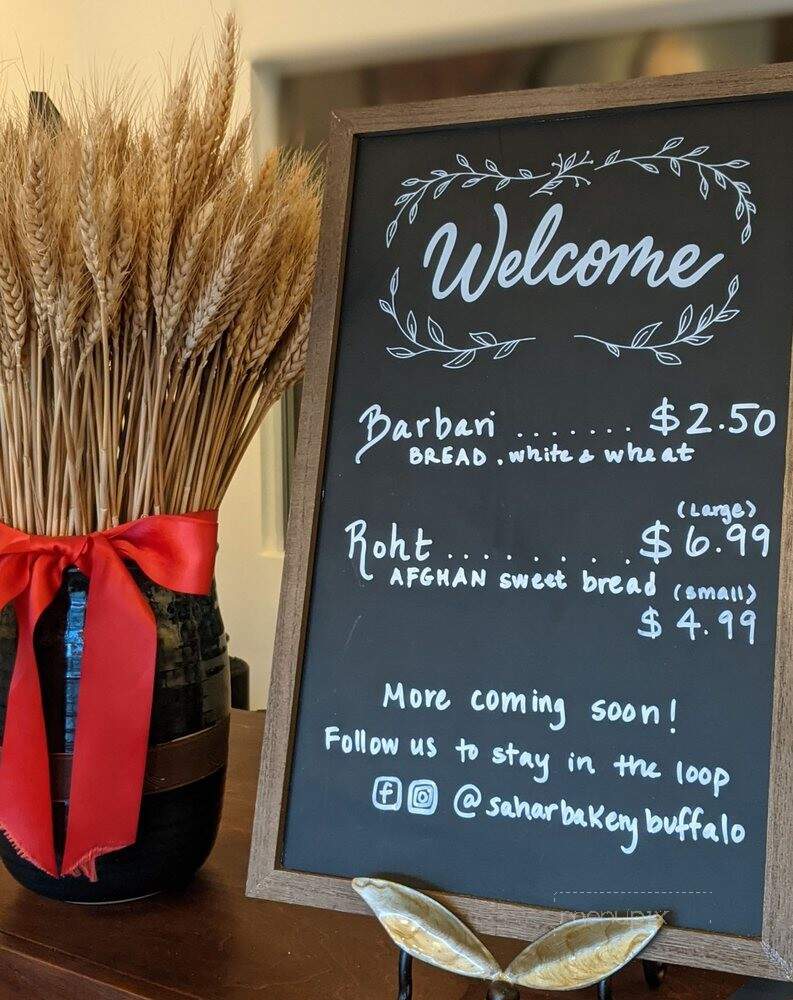 Welcome
Barbari ....... $2.50
BREAD . white & wheat
(Large)
Roht ........ $6.99
AFGHAN sweet bread (small)
$4.99
More coming soon!
Follow us to stay in the loop
@saharbakerybuffalo
menupix